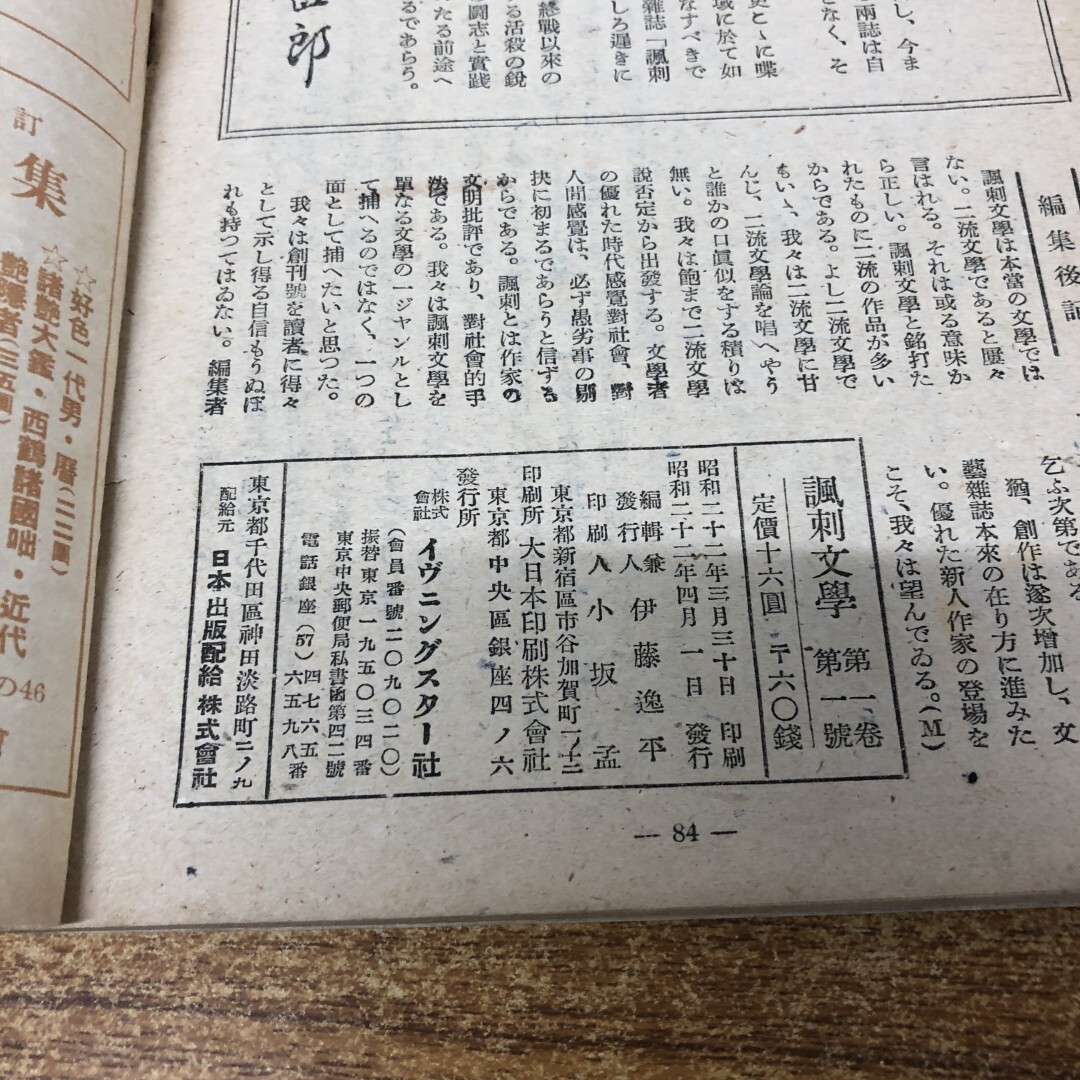 し、今ま
兩誌は自
となく、そ
更と〱に喋
域に於て如
なすべきで
雜誌「諷刺
しろ遲きに
終戰以來の
る活殺の銳
鬪志と實踐
たる前途へ
るであらう。
郎
編集後記
諷刺文學は本當の文學では
ない。二流文學であると屢々
言はれる。それは或る意味か
ら正しい。諷刺文學と銘打た
れたものに二流の作品が多い
からである。よし二流文學で
もいゝ、我々は二流文學に甘
んじ、二流文學論を唱へやう
と誰かの口眞似をする積りは
無い。我々は飽まで二流文學
說否定から出發する。文學者
の優れた時代感覺對社會、對
人間感覺は、必ず愚劣事の剔
抉に初まるであらうと信ずる
からである。諷刺とは作家の
文明批評であり、對社會的手
法である。我々は諷刺文學を
單なる文學の一ジャンルとし
て捕へるのではなく、一つの
面として捕へたいと思つた。
我々は創刊號を讀者に得々
として示し得る自信もうぬぼ
れも持つてはゐない。編集者
乞ふ次第である
猶、創作は逐次增加し、文
藝雜誌本來の在り方に進みた
い。優れた新人作家の登場を
こそ、我々は望んでゐる。(M)
諷刺文學 第一卷 第一號
定價十六圓 〒六〇錢
昭和二十二年三月三十日 印刷
昭和二十二年四月 一日 發行
編輯兼發行人 伊藤逸平
印刷人 小坂孟
東京都新宿區市谷加賀町一ノ十二
印刷所 大日本印刷株式會社
東京都中央區銀座四ノ六
發行所
株式會社 イヴニングスター社
(會員番號二〇九〇二〇)
振替東京一九五〇三四番
東京中央郵便局私書凾第四二號
電話銀座(57)四七六五
六五九八番
東京都千代田區神田淡路町二ノ九
配給元 日本出版配給株式會社
— 84 —
訂
集
☆好色一代男・曆(二二圓)
☆諸艷大鑑・西鶴諸國咄・近代
艷隱者(三五圓)
の46